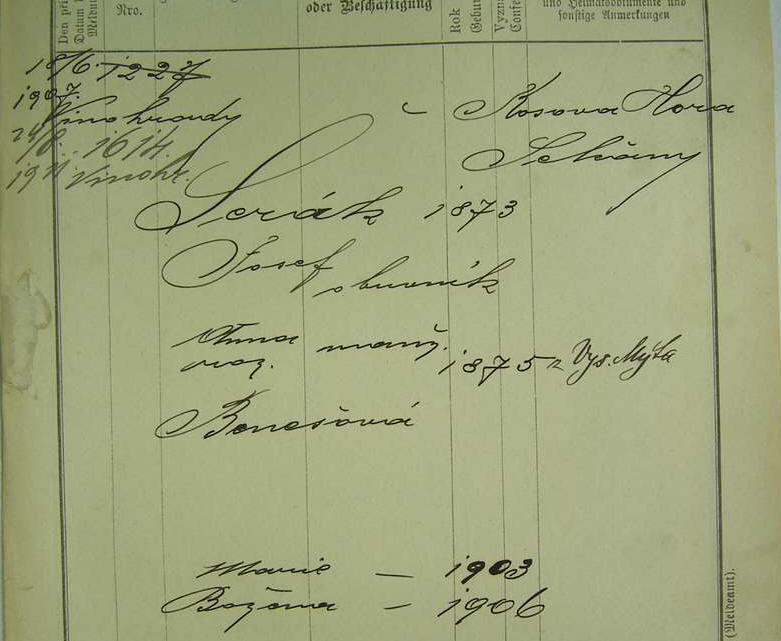 Den při
Datum
Meldun
Nro.
oder Beschäftigung
Rok
Geburt
Vyzn
Confe
und Heimatsdokumente und
sonstige Anmerkungen
18/6. 1227
1907.
Vinohrady
č Kosova Hora
24/8. 1614.
Selčany
1911 Vinohr.
Serák 1873
Josef
obuvník
Anna manž.
roz. 1875 z Vys. Mýta
Benešová
Marie — 1903
Božena — 1906
(Meldeamt).